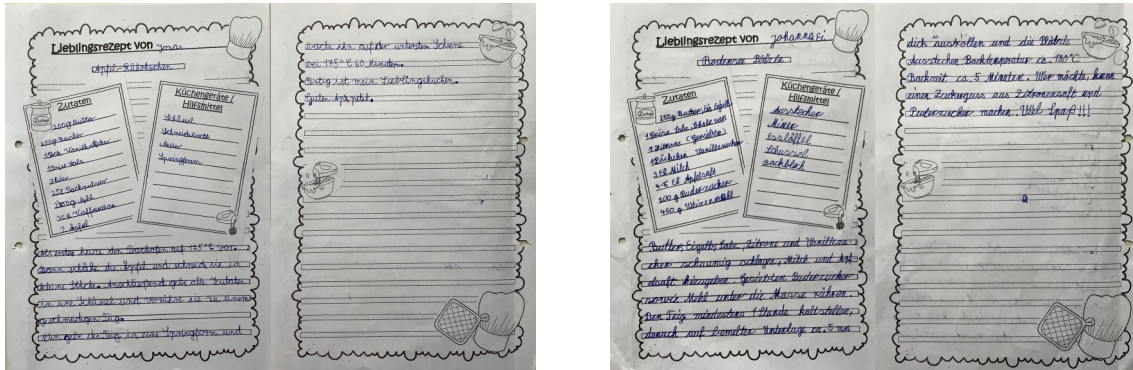 Lieblingsrezept von Jonas
Apfel-Rührkuchen
Zutaten
200g Butter
200g Zucker
1 Pck. Vanillezucker
1 Prise Salz
2 Tl Backpulver
2 Äpfel
Küchengeräte /
Hilfsmittel
Schüssel
Schneidebrett
Messer
Springform
den Backofen auf 175°C vor.
Dann schäle die Äpfel und schneide sie in
kleine Stücke. Anschließend gebe alle Zutaten
in eine Schüssel und verrühre sie zu einem
geschmeidigen Teig.
Nun gebe den Teig in eine Springform und
backe ihn auf der untersten Schiene
bei 175°C 60 Minuten.
Fertig ist mein Lieblingskuchen.
Guten Appetit.
Lieblingsrezept von Johanna Ei
Bodensee Plätzle
Zutaten
250g Butter,
1 Prise Salz, Schale von
1 Zitrone (gerieben)
1 Päckchen Vanillezucker
3 El Milch
4-5 El Apfelsaft
200 g Puderzucker
450 g Weizenmehl
Küchengeräte /
Hilfsmittel
Ausstecher
Mixer
Esslöffel
Schüssel
Backblech
Butter, Eigelb, Salz, Zitrone und Vanillezu
cker schaumig schlagen, Milch und Apf
elsaft hinzugeben. Gesiebten Puderzucker
sowie Mehl unter die Masse rühren.
Den Teig mindestens 1 Stunde kaltstellen,
danach auf bemehlter Unterlage ca. 5 mm
dick ausrollen und die Plätzle
Ausstechen Backtemperatur ca. 180°C
Backzeit ca. 5 Minuten. Wer möchte, kann
einen Zuckerguss aus Zitronensaft und
Puderzucker machen. Viel Spaß!!!